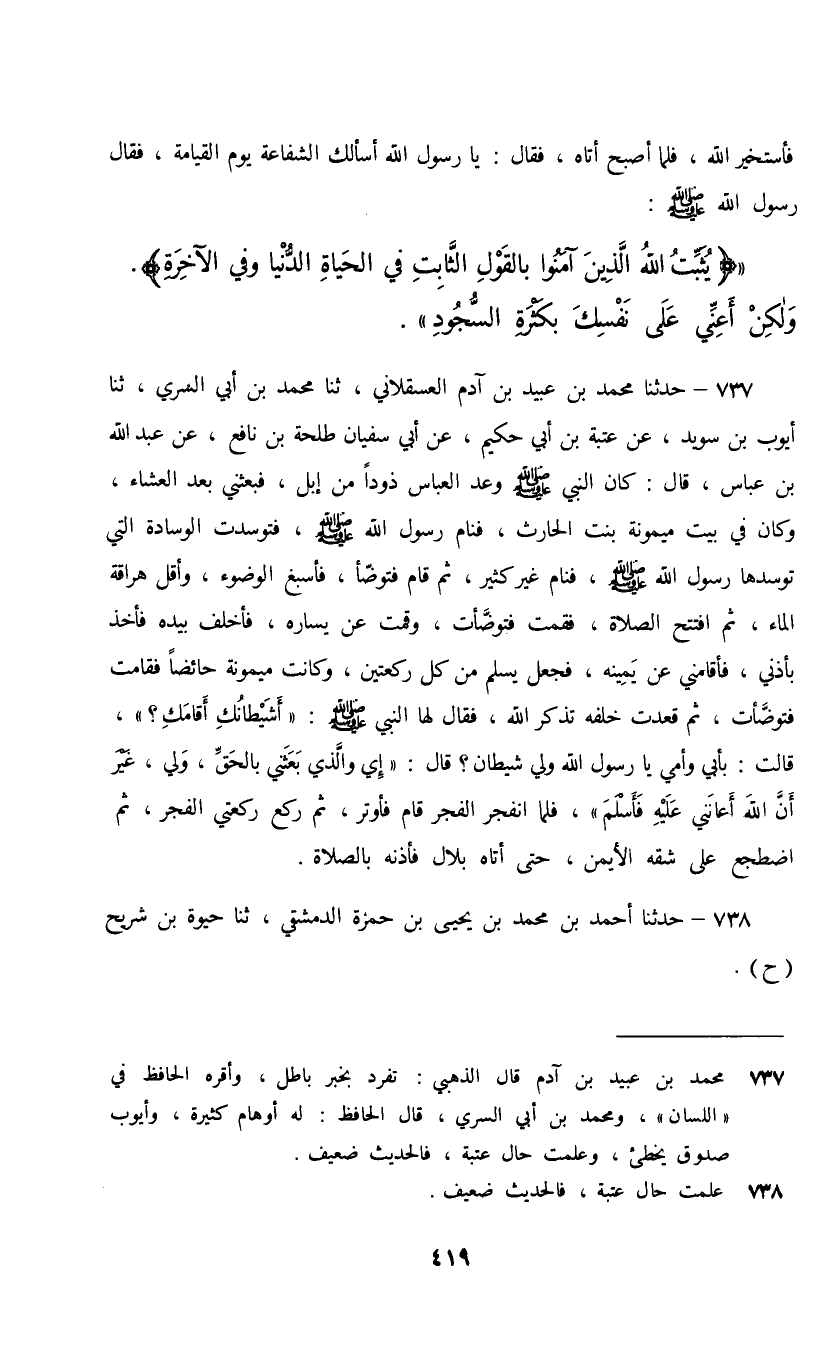 فأستخير الله ، فلما أصبح أتاه ، فقال : يا رسول الله أسألك الشفاعة يوم القيامة ، فقال
رسول الله ﷺ :
«﴿يُثَبِّتُ اللهُ الَّذِينَ آمَنُوا بالقَوْلِ الثَّابِتِ في الحَياةِ الدُّنْيا وفي الآخِرَةِ﴾ .
وَلٰكِنْ أَعِنِّي عَلَى نَفْسِكَ بكَثْرَةِ السُّجُودِ» .
٧٣٧ – حدثنا محمد بن عبيد بن آدم العسقلاني ، ثنا محمد بن أبي السري ، ثنا
أيوب بن سويد ، عن عتبة بن أبي حكيم ، عن أبي سفيان طلحة بن نافع ، عن عبد الله
بن عباس ، قال : كان النبي ﷺ وعد العباس ذوداً من إبل ، فبعثني بعد العشاء ،
وكان في بيت ميمونة بنت الحارث ، فنام رسول الله ﷺ ، فتوسدت الوسادة التي
توسدها رسول الله ﷺ ، فنام غير كثير ، ثم قام فتوضّأ ، فأسبغ الوضوء ، وأقل هراقة
الماء ، ثم افتتح الصلاة ، فقمت فتوضَّأت ، وقمت عن يساره ، فأخلف بيده فأخذ
بأذني ، فأقامني عن يَمِينه ، فجعل يسلم من كل ركعتين ، وكانت ميمونة حائضاً فقامت
فتوضَّأت ، ثم قعدت خلفه تذكر الله ، فقال لها النبي ﷺ : «أَشَيْطانُكِ أَقامَكِ ؟» ،
قالت : بأبي وأمي يا رسول الله ولي شيطان ؟ قال : «إي والَّذي بَعَثَني بالحَقِّ ، وَلي ، غَيْرَ
أَنَّ اللهَ أَعانَني عَلَيْهِ فَأَسْلَمَ» ، فلما انفجر الفجر قام فأوتر ، ثم ركع ركعتي الفجر ، ثم
اضطجع على شقه الأيمن ، حتى أتاه بلال فأذنه بالصلاة .
٧٣٨ – حدثنا أحمد بن محمد بن يحيى بن حمزة الدمشقي ، ثنا حيوة بن شريح
(ح) .
٧٣٧ محمد بن عبيد بن آدم قال الذهبي : تفرد بخبر باطل ، وأقره الحافظ في
«اللسان» ، ومحمد بن أبي السري ، قال الحافظ : له أوهام كثيرة ، وأيوب
صدوق يخطئ ، وعلمت حال عتبة ، فالحديث ضعيف .
٧٣٨ علمت حال عتبة ، فالحديث ضعيف .
٤١٩